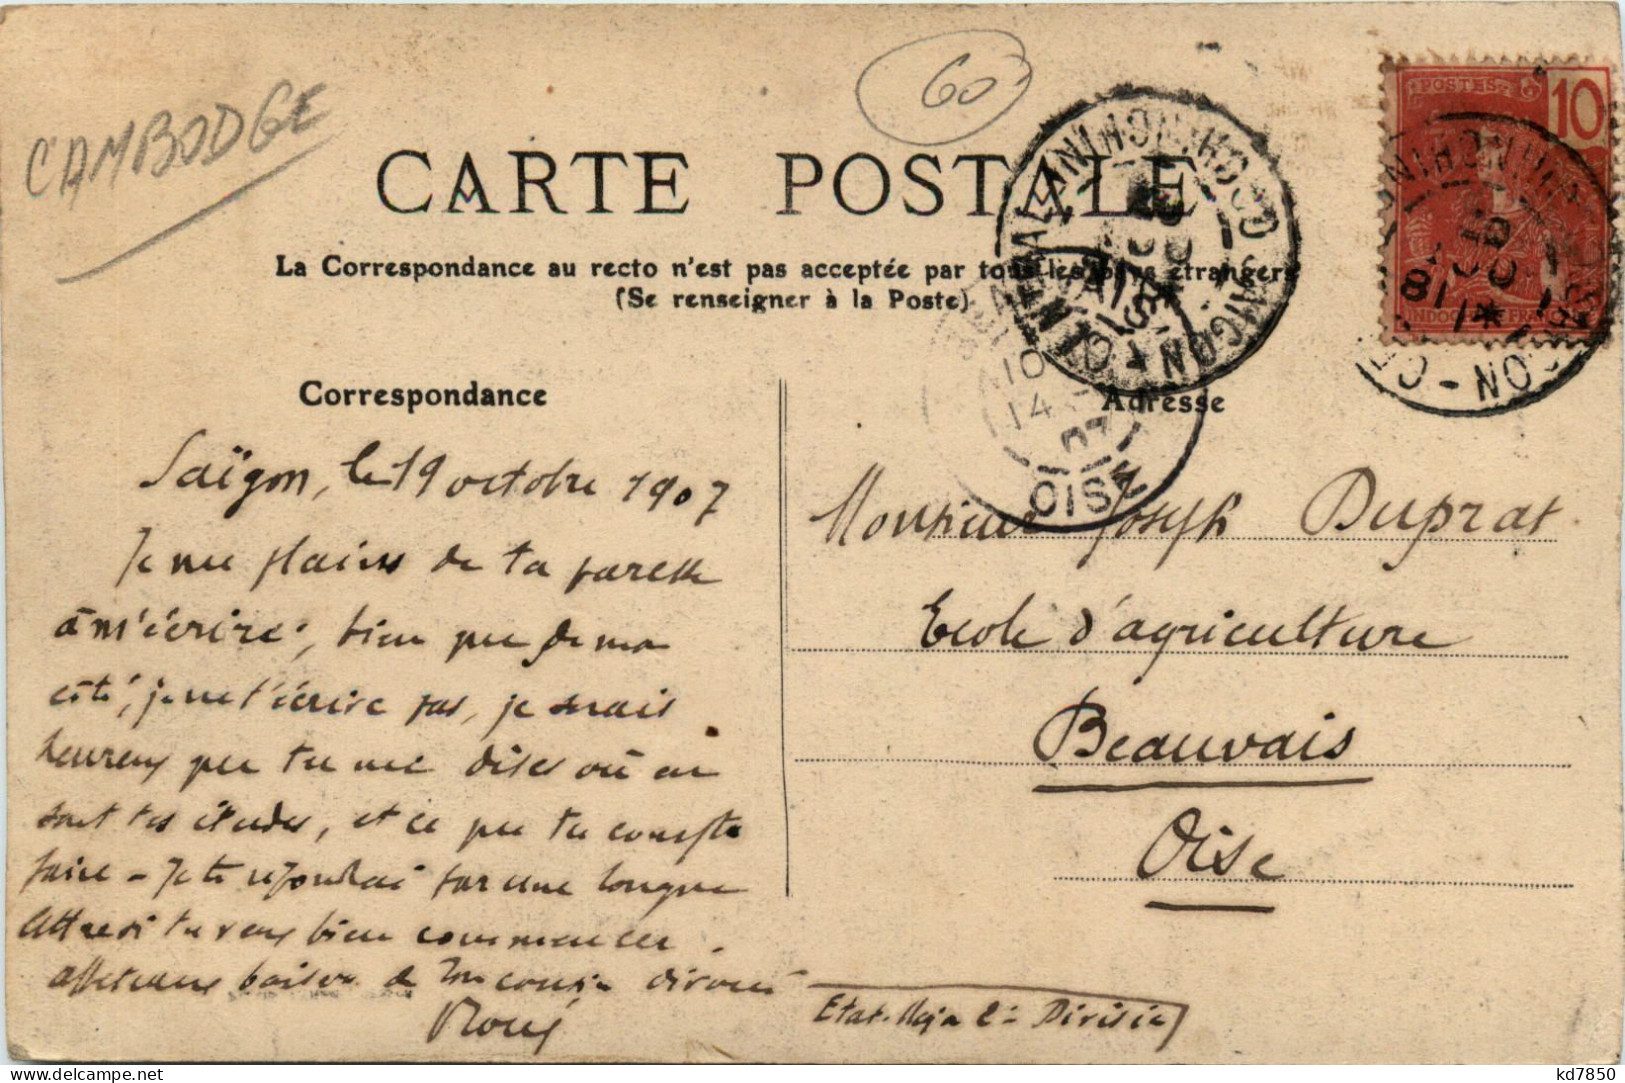 CAMBODGE
60
CARTE POSTALE
La Correspondance au recto n'est pas acceptée par tous les pays étrangers
(Se renseigner à la Poste)
POSTES 10
INDOCHINE FRANÇAISE
SAIGON-CENTRAL COCHINCHINE
SAIGON - CENTRAL COCHINCHINE
10
14
07
OISE
Correspondance
Saïgon, le 19 octobre 1907
Je me plains de ta paresse
à m'écrire, bien que de mon
côté, je ne t'écrive pas, je serais
heureux que tu me dises où en
sont tes études, et ce que tu compte
faire - Je te répondrai par une longue
lettre si tu veux bien commencer.
affectueux baisers de ton cousin dévoué
Adresse
Monsieur Joseph Duprat
Ecole d'agriculture
Beauvais
Oise
Etat-Major 2e Division
kd7850